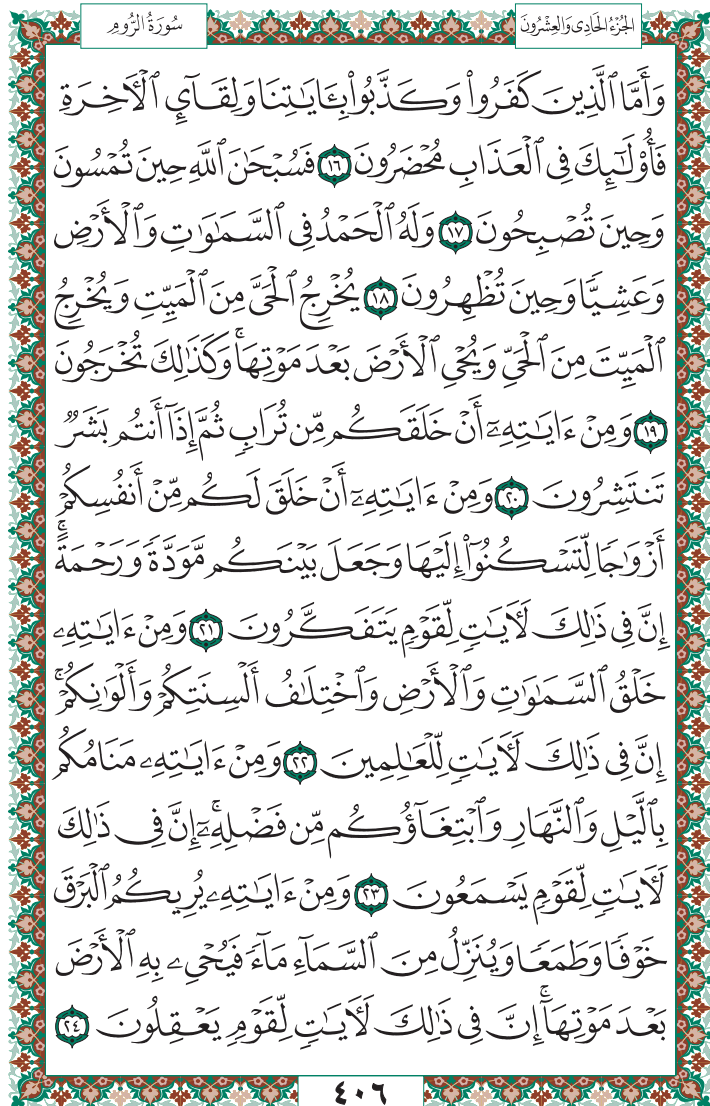 الجُزْءُ الحَادِى وَالعِشْرُونَ
سُورَةُ الرُّومِ
وَأَمَّا ٱلَّذِينَ كَفَرُواْ وَكَذَّبُواْ بِـَٔايَٰتِنَا وَلِقَآيِٕ ٱلۡأٓخِرَةِ
فَأُوْلَٰٓئِكَ فِى ٱلۡعَذَابِ مُحۡضَرُونَ ١٦ فَسُبۡحَٰنَ ٱللَّهِ حِينَ تُمۡسُونَ
وَحِينَ تُصۡبِحُونَ ١٧ وَلَهُ ٱلۡحَمۡدُ فِى ٱلسَّمَٰوَٰتِ وَٱلۡأَرۡضِ
وَعَشِيّٗا وَحِينَ تُظۡهِرُونَ ١٨ يُخۡرِجُ ٱلۡحَىَّ مِنَ ٱلۡمَيِّتِ وَيُخۡرِجُ
ٱلۡمَيِّتَ مِنَ ٱلۡحَىِّ وَيُحۡىِ ٱلۡأَرۡضَ بَعۡدَ مَوۡتِهَاۚ وَكَذَٰلِكَ تُخۡرَجُونَ
١٩ وَمِنۡ ءَايَٰتِهِۦٓ أَنۡ خَلَقَكُم مِّن تُرَابٖ ثُمَّ إِذَآ أَنتُم بَشَرٞ
تَنتَشِرُونَ ٢٠ وَمِنۡ ءَايَٰتِهِۦٓ أَنۡ خَلَقَ لَكُم مِّنۡ أَنفُسِكُمۡ
أَزۡوَٰجٗا لِّتَسۡكُنُوٓاْ إِلَيۡهَا وَجَعَلَ بَيۡنَكُم مَّوَدَّةٗ وَرَحۡمَةًۚ
إِنَّ فِى ذَٰلِكَ لَأٓيَٰتٖ لِّقَوۡمٖ يَتَفَكَّرُونَ ٢١ وَمِنۡ ءَايَٰتِهِۦ
خَلۡقُ ٱلسَّمَٰوَٰتِ وَٱلۡأَرۡضِ وَٱخۡتِلَٰفُ أَلۡسِنَتِكُمۡ وَأَلۡوَٰنِكُمۡۚ
إِنَّ فِى ذَٰلِكَ لَأٓيَٰتٖ لِّلۡعَٰلِمِينَ ٢٢ وَمِنۡ ءَايَٰتِهِۦ مَنَامُكُم
بِٱلَّيۡلِ وَٱلنَّهَارِ وَٱبۡتِغَآؤُكُم مِّن فَضۡلِهِۦٓۚ إِنَّ فِى ذَٰلِكَ
لَأٓيَٰتٖ لِّقَوۡمٖ يَسۡمَعُونَ ٢٣ وَمِنۡ ءَايَٰتِهِۦ يُرِيكُمُ ٱلۡبَرۡقَ
خَوۡفٗا وَطَمَعٗا وَيُنَزِّلُ مِنَ ٱلسَّمَآءِ مَآءٗ فَيُحۡىِۦ بِهِ ٱلۡأَرۡضَ
بَعۡدَ مَوۡتِهَآۚ إِنَّ فِى ذَٰلِكَ لَأٓيَٰتٖ لِّقَوۡمٖ يَعۡقِلُونَ ٢٤
٤٠٦